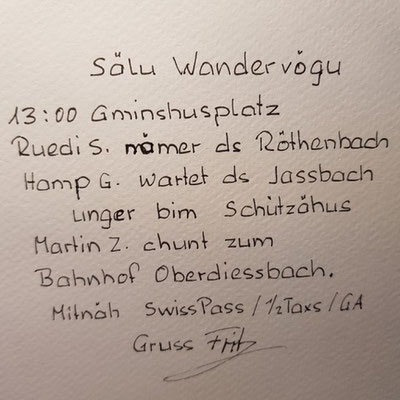 Sälu Wandervögu
13:00 Gminshusplatz
Ruedi S. nämer ds Röthenbach
Hamp G. wartet ds Jassbach
unger bim Schützähus
Martin Z. chunt zum
Bahnhof Oberdiessbach.
Mitnäh SwissPass / ½Taxs / GA
Gruss Fritz